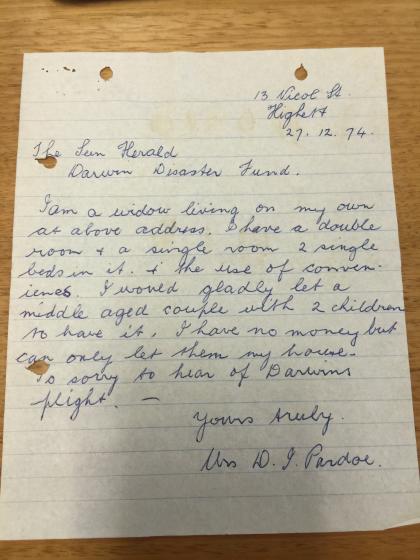 13 Nicol St.
Highett
27.12.74.
The Sun Herald
Darwin Disaster Fund.
I am a widow living on my own
at above address. I have a double
room & a single room 2 single
beds in it. & the use of conven-
iences I would gladly let a
middle aged couple with 2 children
to have it. I have no money but
can only let them my house.
So sorry to hear of Darwins
plight. —
Yours truly.
Mrs D. J. Pardoe.